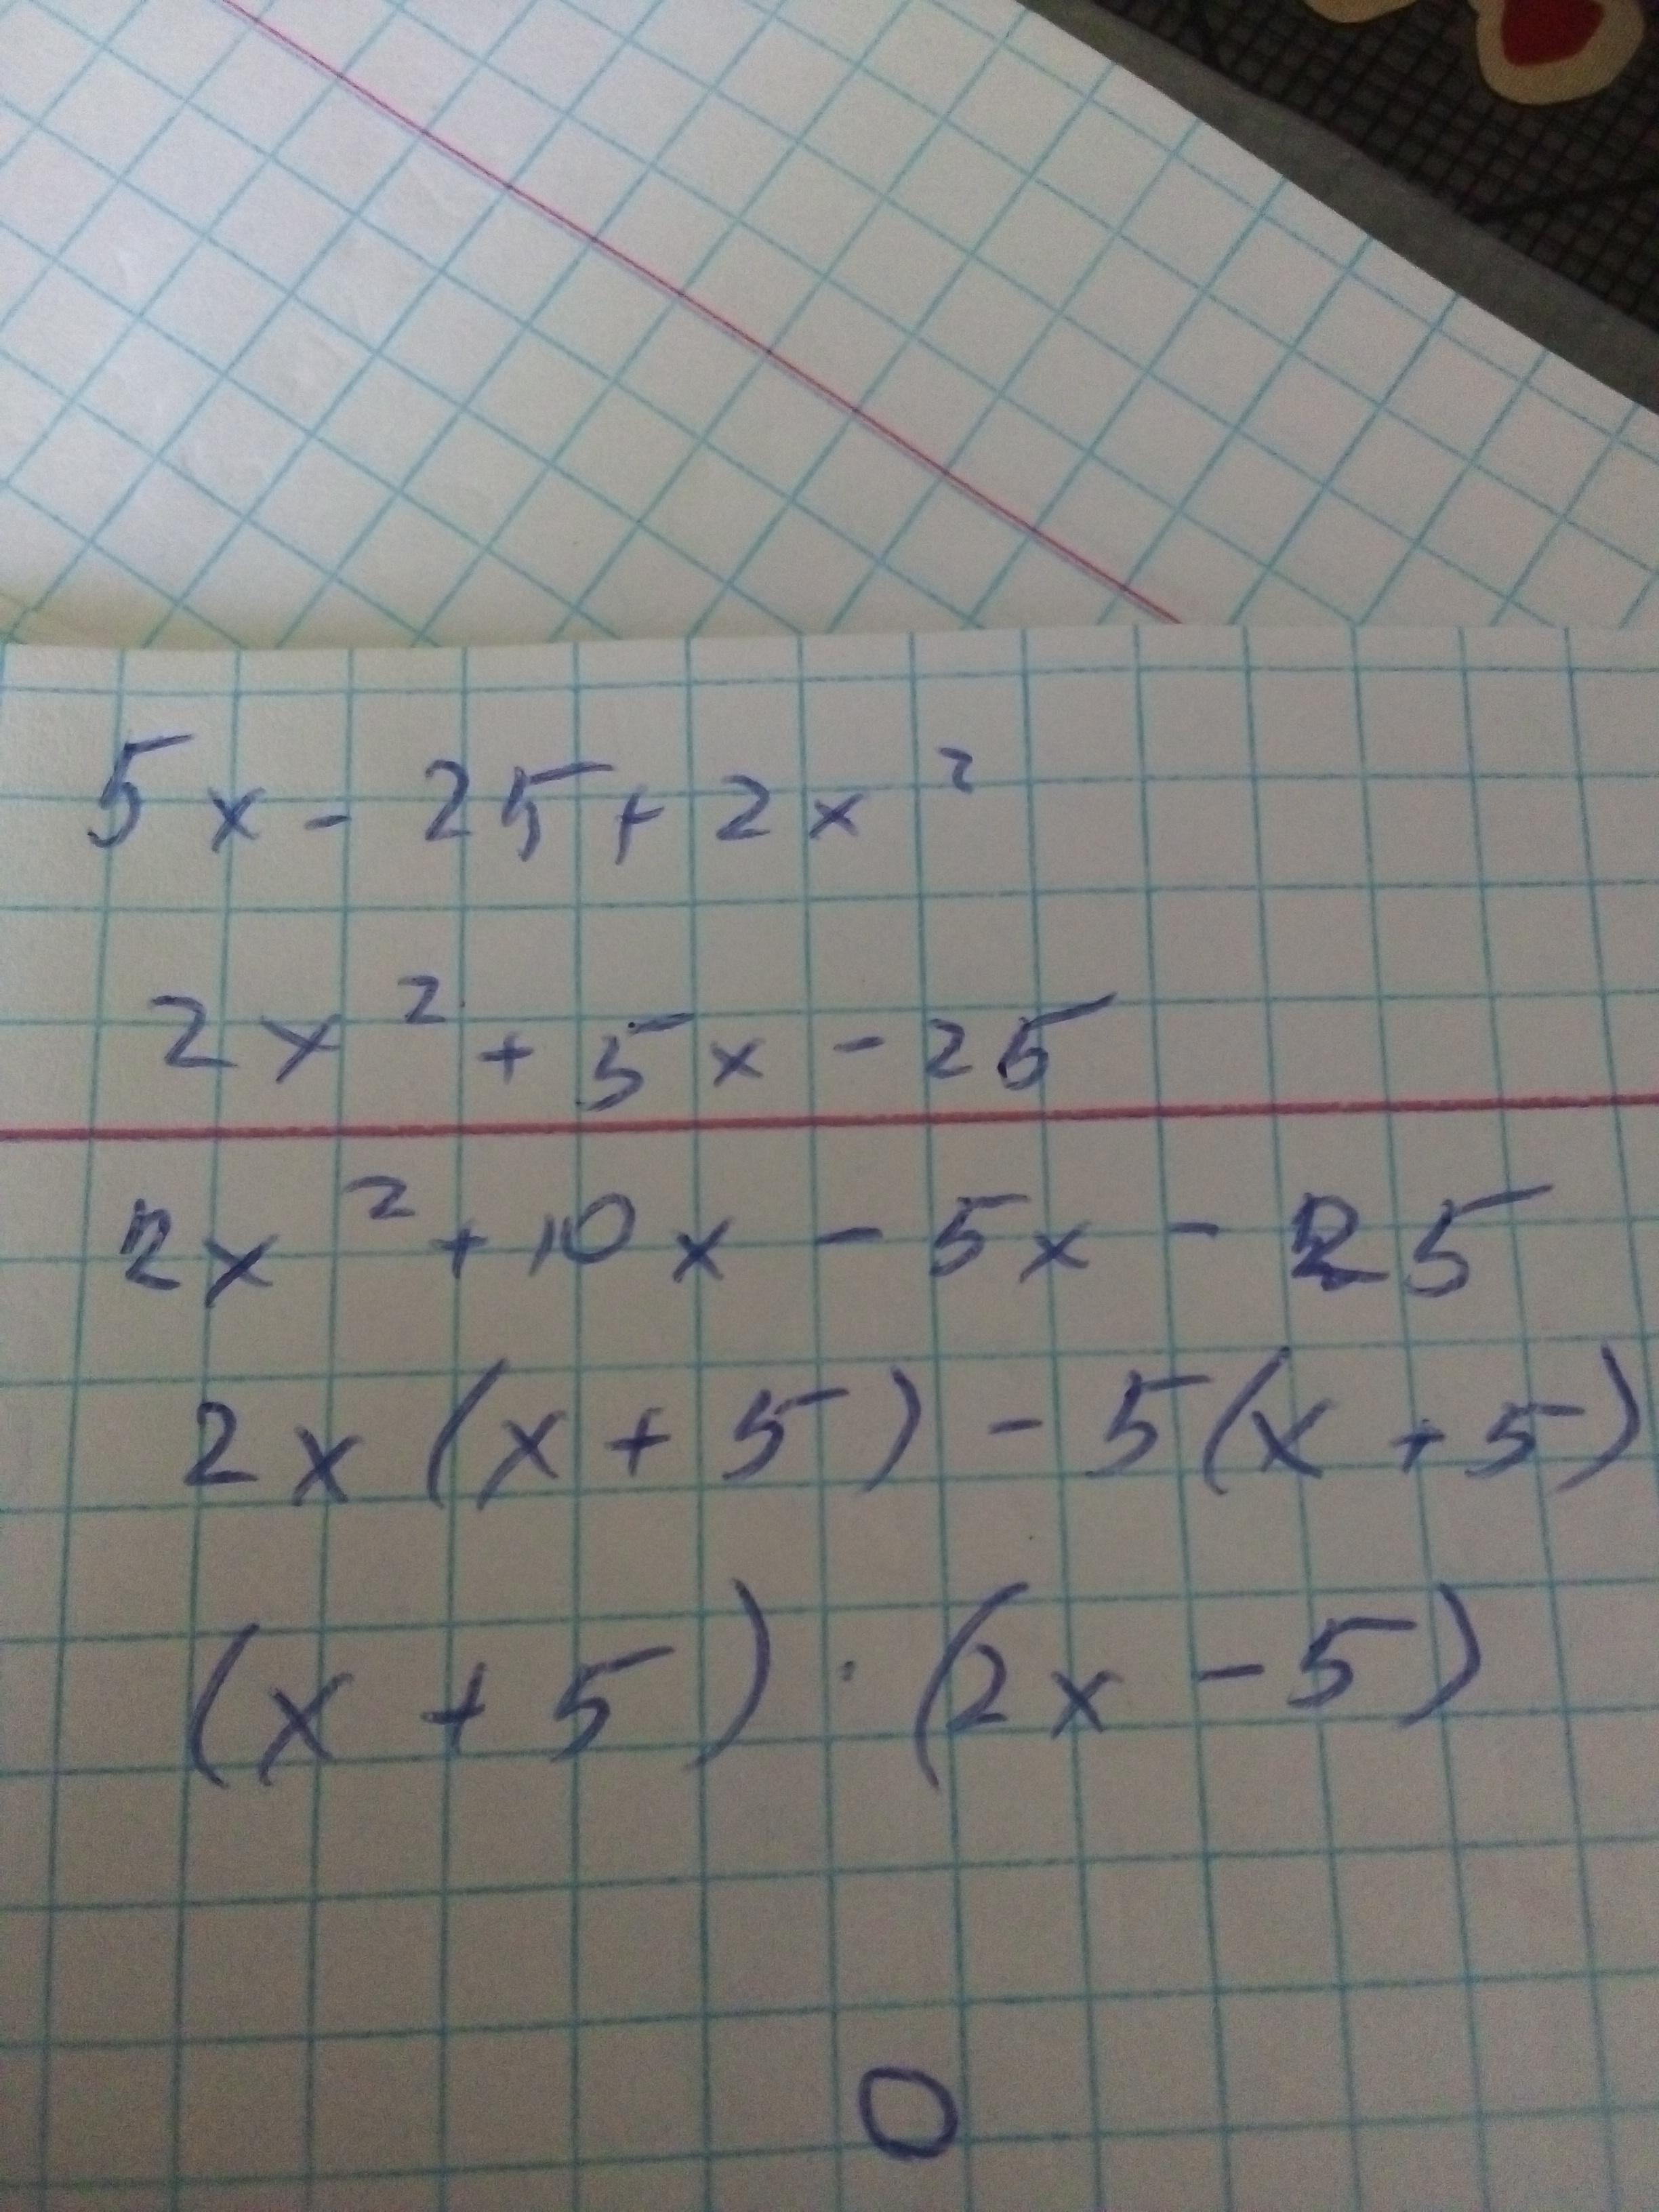 5x - 25 + 2x²
2x² + 5x - 25
2x² + 10x - 5x - 25
2x(x + 5) - 5(x + 5)
(x + 5) · (2x - 5)
0